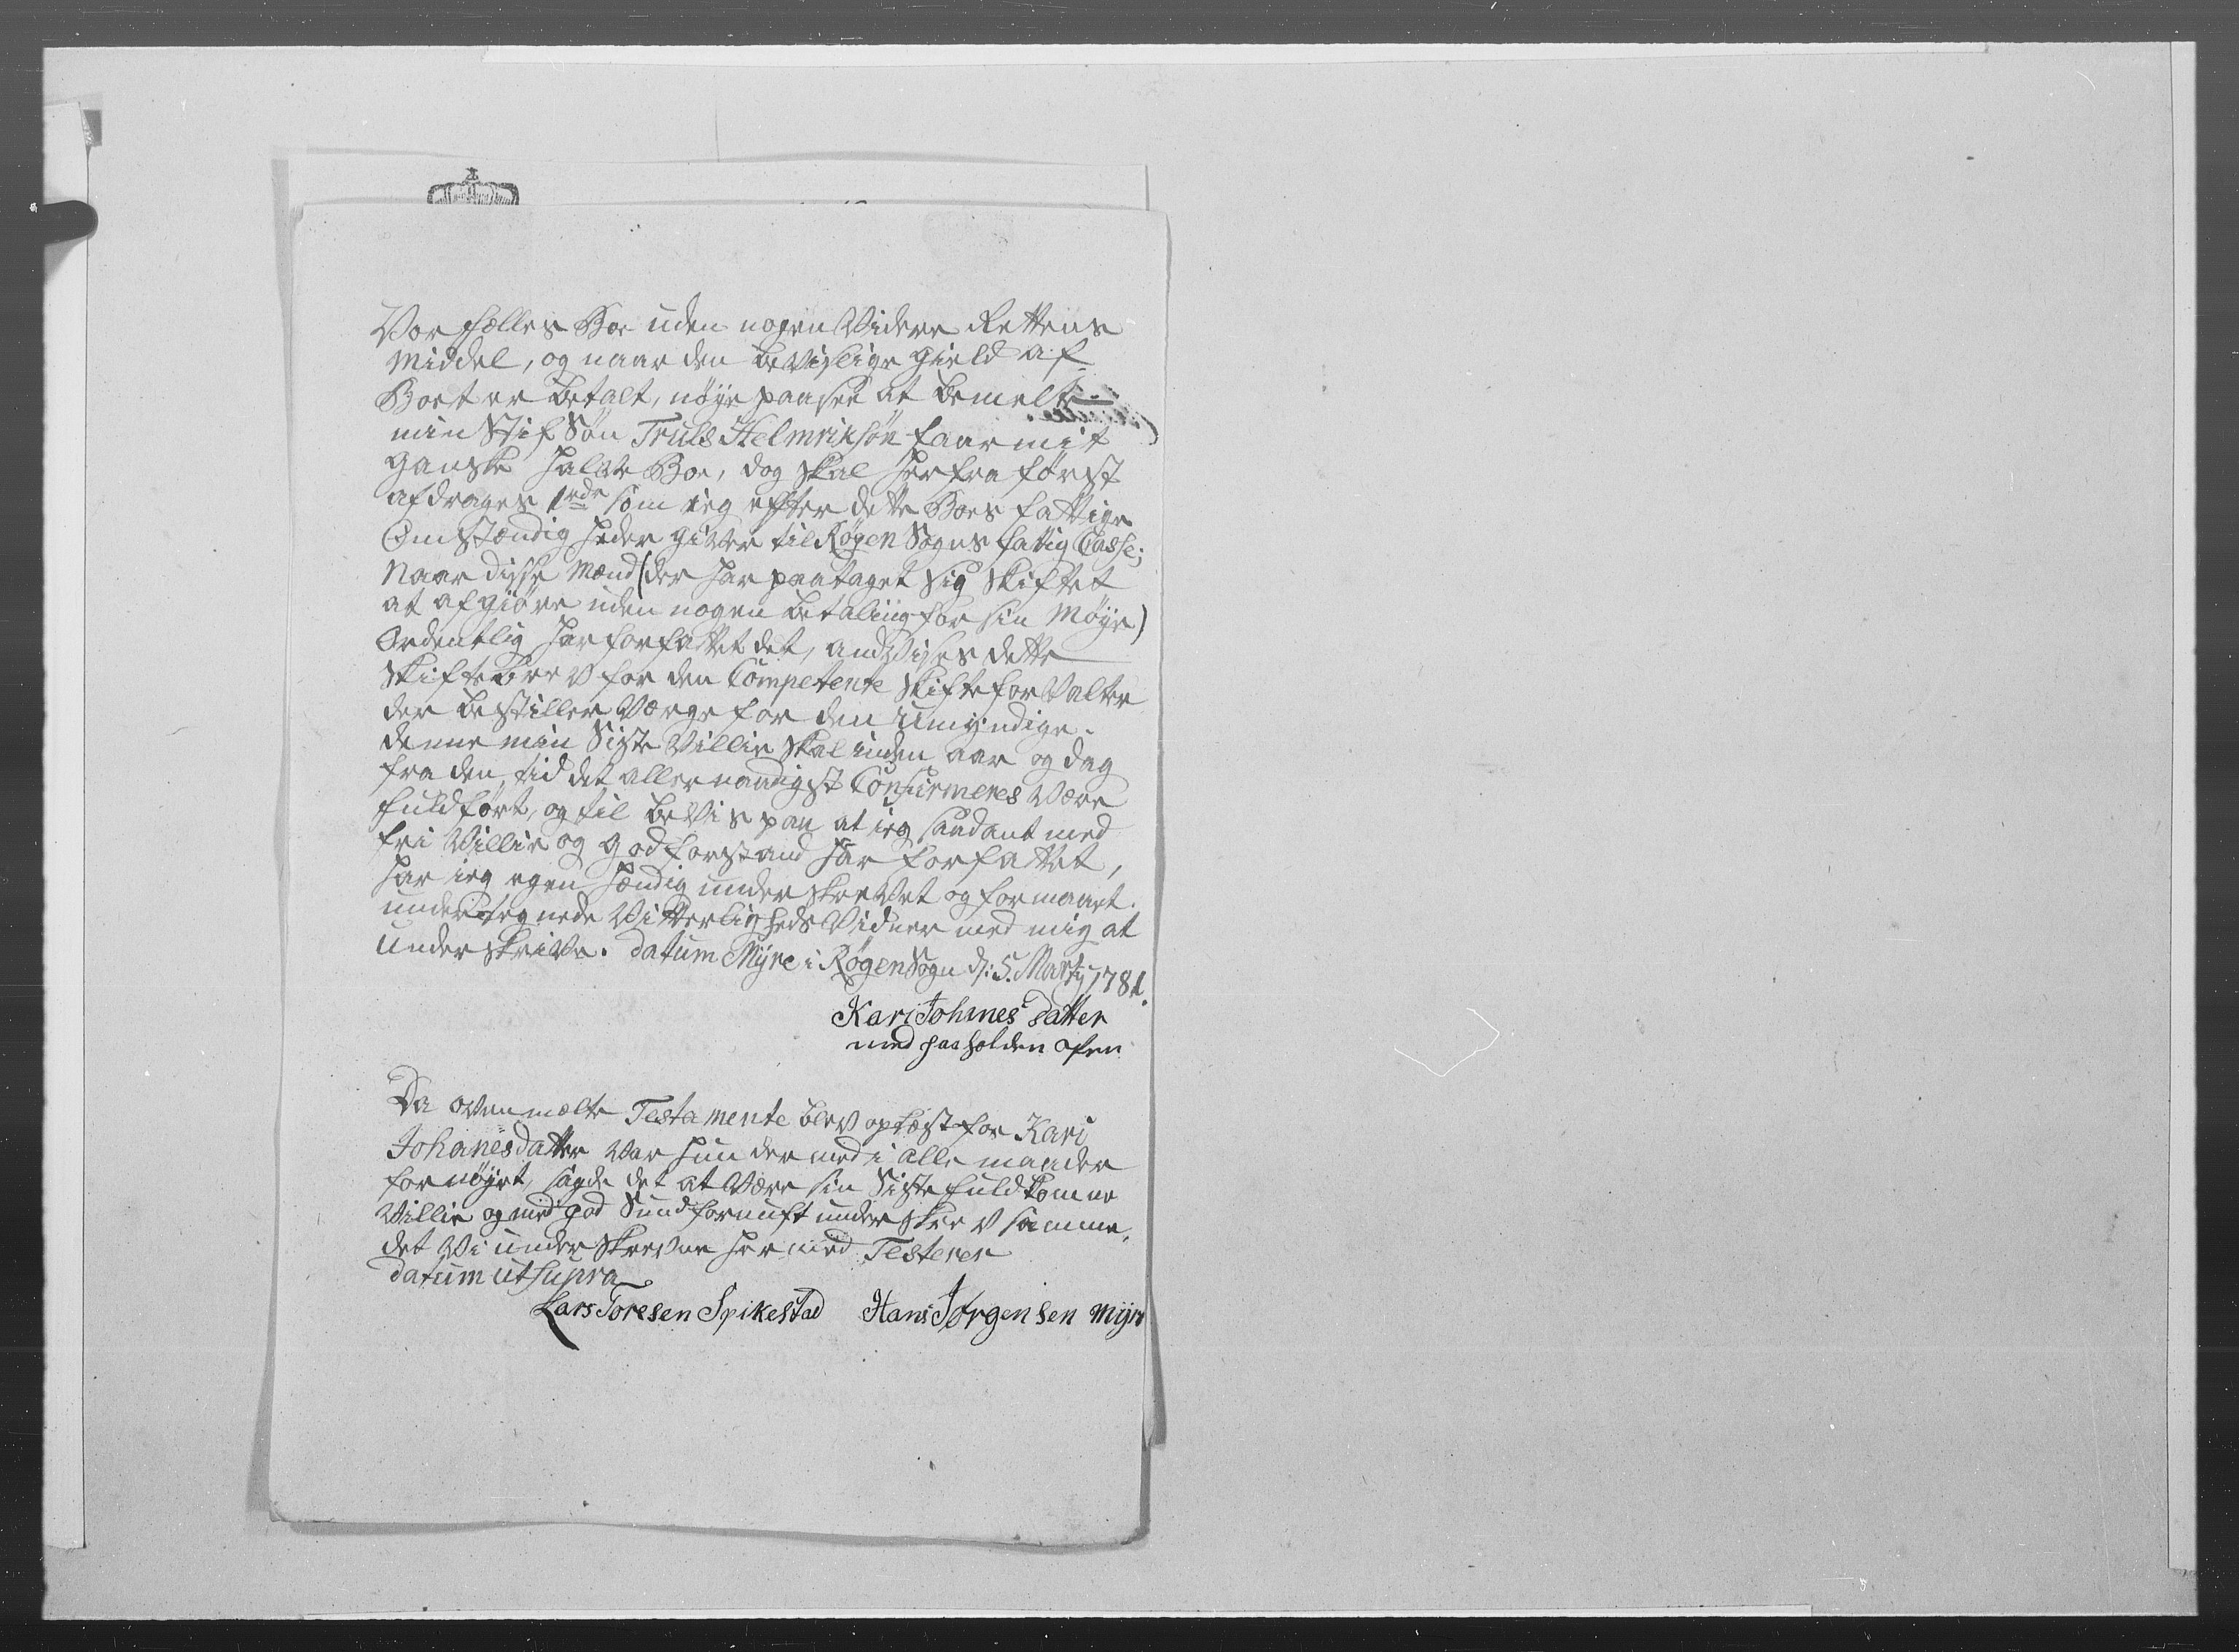 Vor fælles Boe uden nogen Videre Rettens
Middel, og naar den bevislige gield af
Boet er betalt, nøye paasee at bemelte
min Stif Søn Truls Helmriksøn faar mit
ganske halve Boe, dog skal herfra først
afdrages 1rdr som ieg efter dette Boes fattige
Omstændigheder giver til Røgen Sogns fattig Casse;
Naar disse Mænd (der har paataget sig skiftet
at afgiøre uden nogen betaling for sin Møye)
Ordentlig har forfattet det, andvises dette
Skiftebrev for den Competente Skifteforvalter
der bestiller Værge for den umyndige.
denne min Siste Villie skal inden aar og dag
fra den tid det allernaadigst Confirmeres være
fuldført, og til bevis paa at ieg saadant med
fri Villie og god forstand har forfattet,
har ieg egenhændig underskrevet og formaaet
undertegnede Vitterligheds Vidner med mig at
underskrive. datum Myre i Røgen Sogn d: 5. Martij 1781.
Kari Johnnes datter
med paaholden Pen
Da ovenmelte Testamente blev oplæst for Kari
Johanesdatter var hun dermed i alle maader
fornøyet, sagde det at være sin Siste fuldkomne
Villie og med god Sund fornuft underskrev samme,
det Vi underskrevne hermed Testerer
datum ut supra
Lars Toresen Spikestad Hans Jørgensen Myre